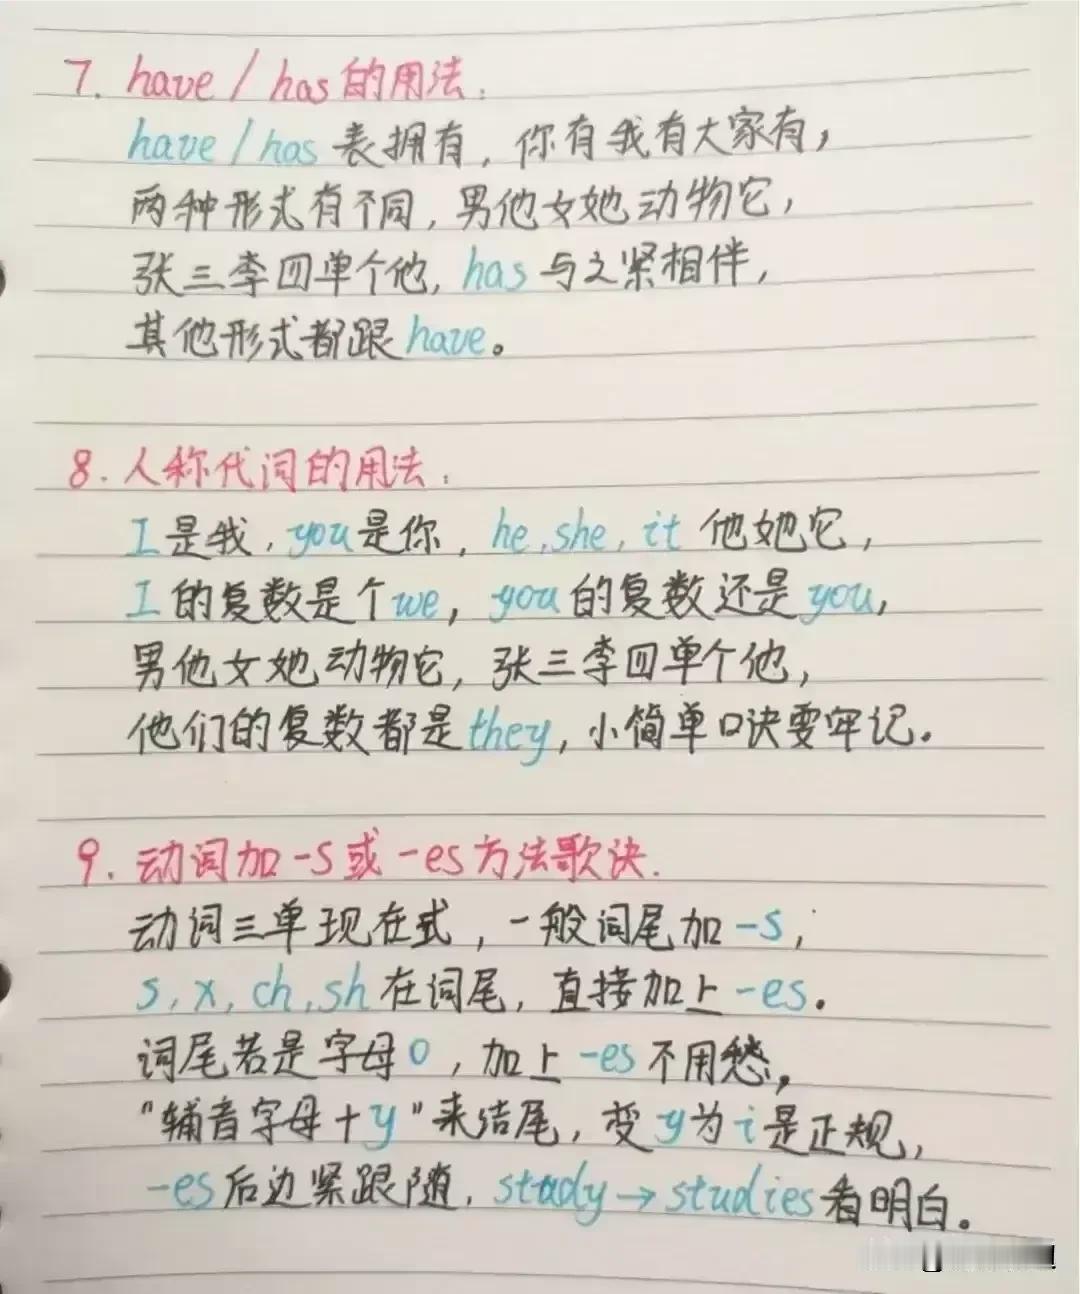 7. have / has的用法:
have / has 表拥有, 你有我有大家有,
两种形式有个同, 男他女她动物它,
张三李四单个他, has与之紧相伴,
其他形式都跟have。
8. 人称代词的用法:
I是我, you是你, he, she, it 他她它,
I的复数是个we, you的复数还是you,
男他女她动物它, 张三李四单个他,
他们的复数都是they, 小简单口诀要牢记.
9. 动词加-s或-es方法歌诀.
动词三单现在式, 一般词尾加-s;
s, x, ch, sh在词尾, 直接加上-es.
词尾若是字母o, 加上-es不用愁,
"辅音字母+y"来结尾, 变y为i是正规,
-es后边紧跟随, study→studies看明白。